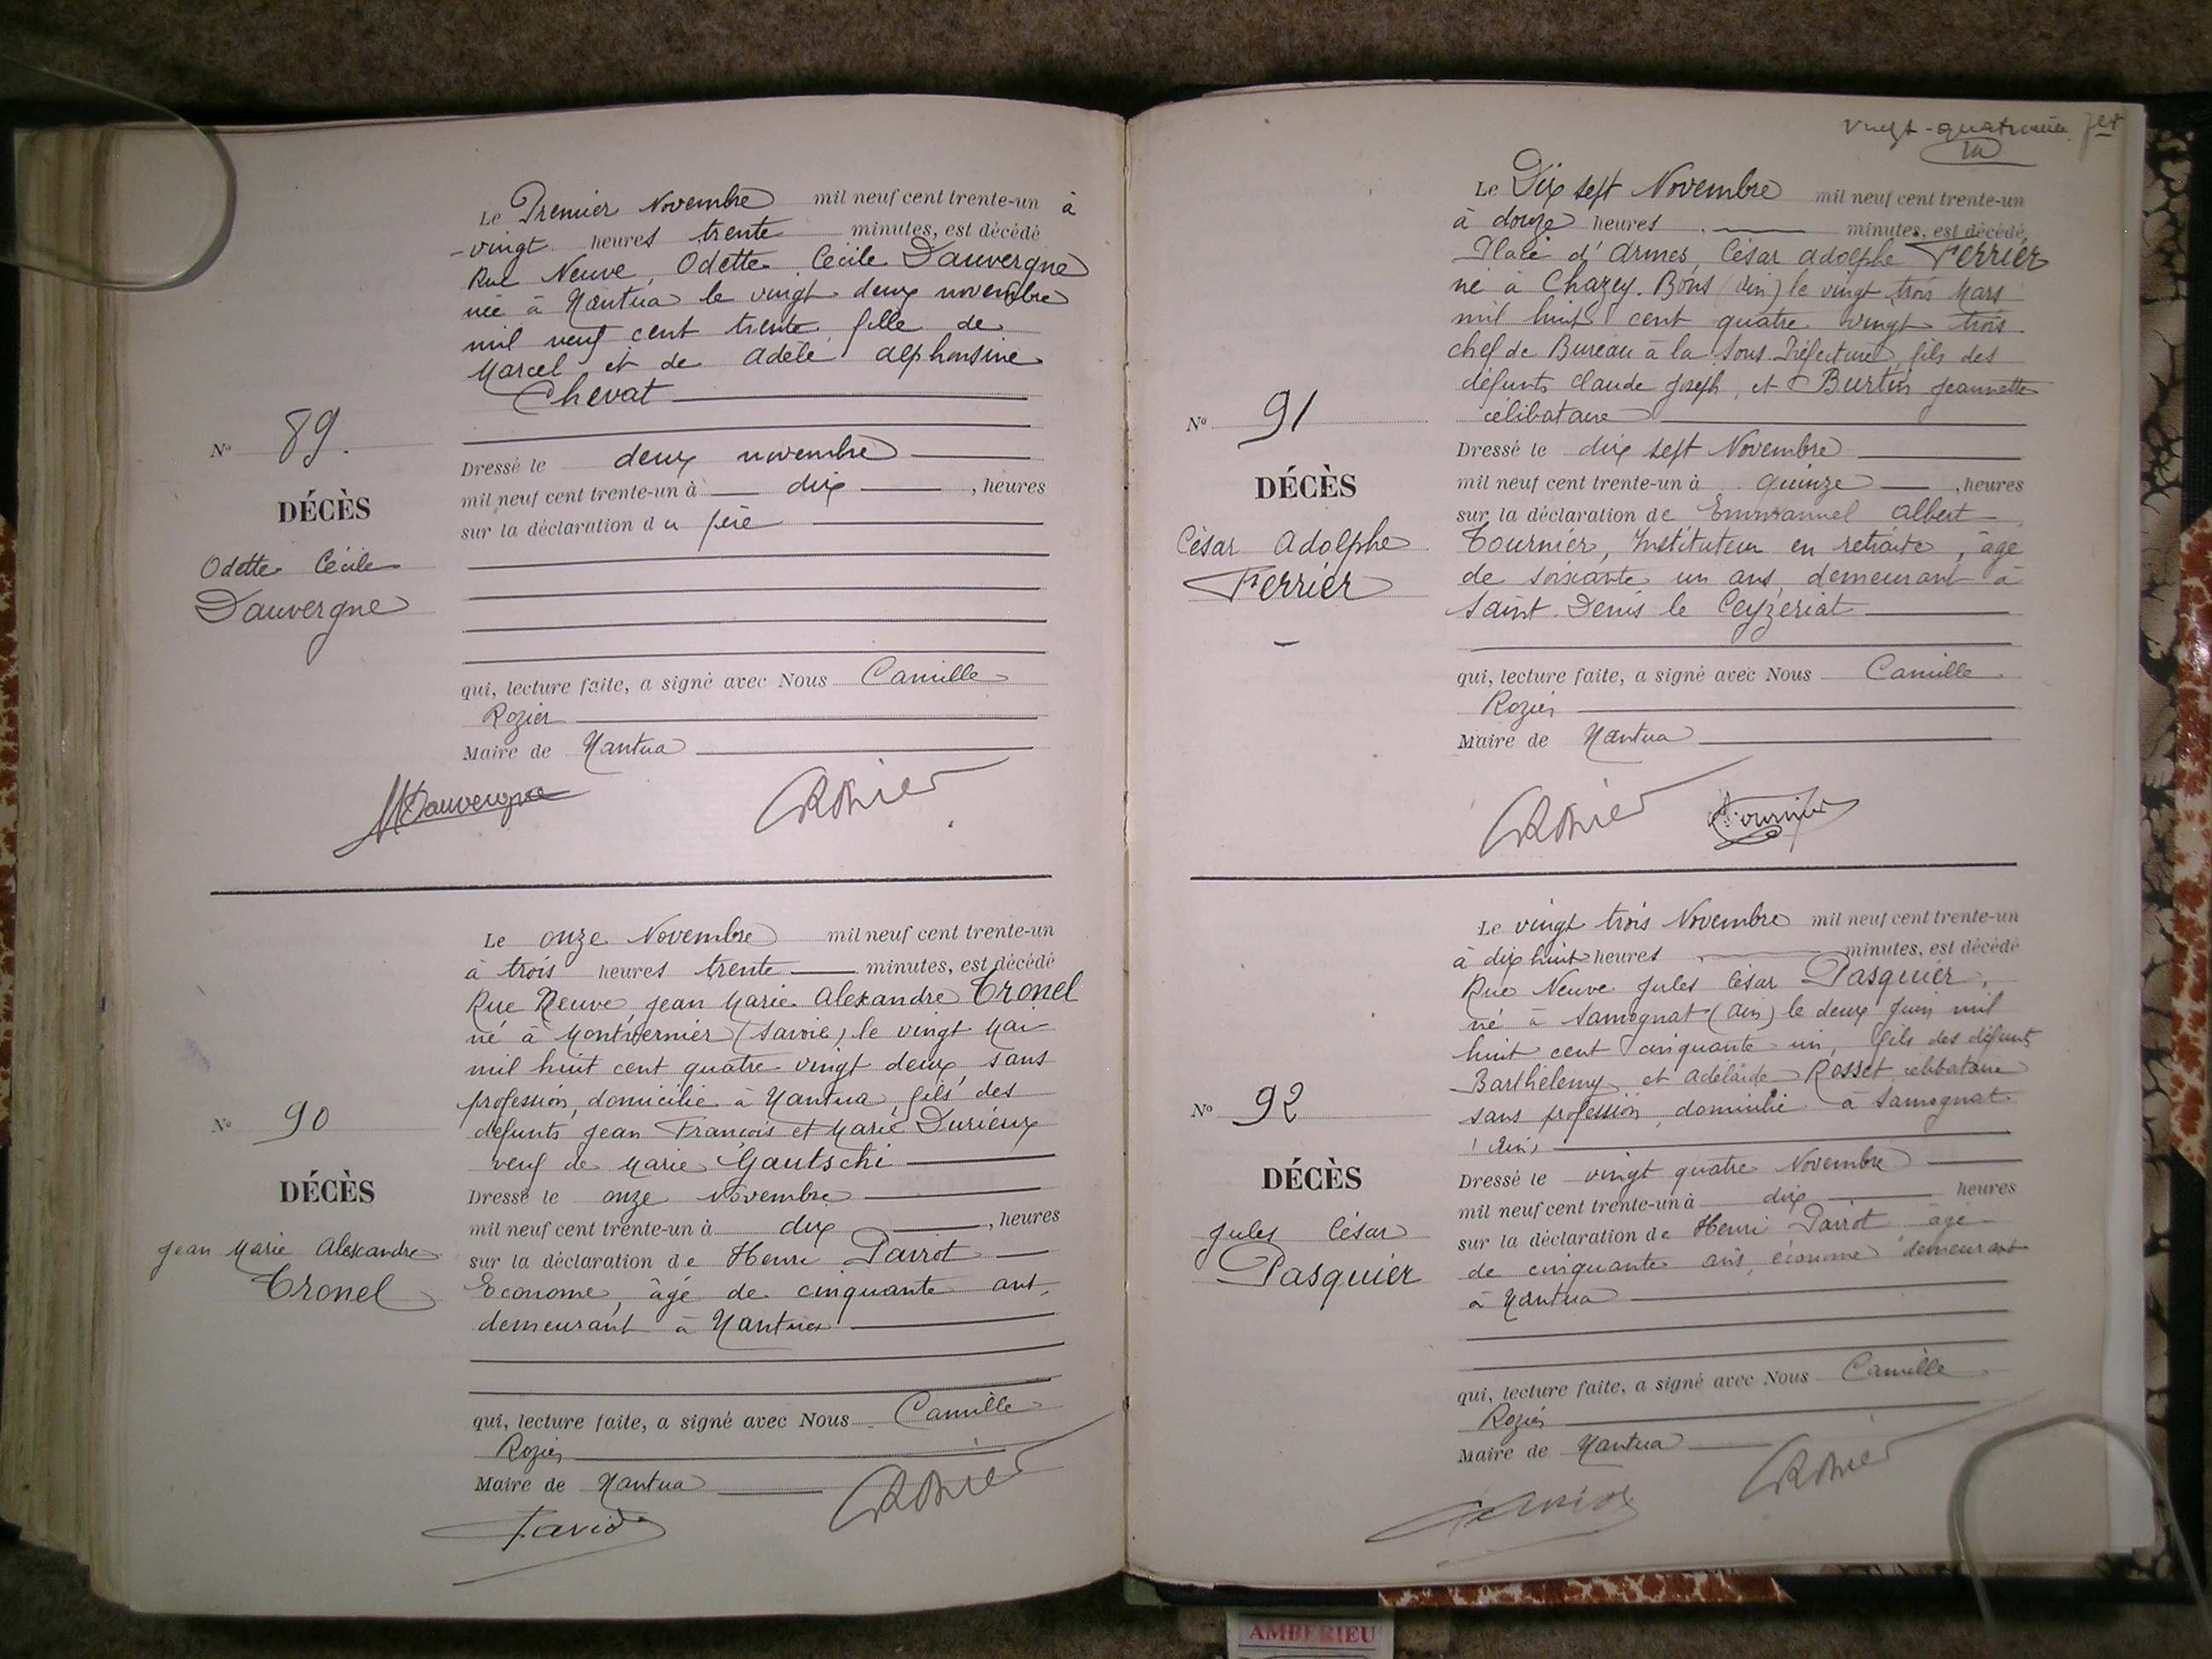 Le Premier Novembre mil neuf cent trente-un à
-vingt heures trente minutes, est décédé
Rue Neuve, Odette Cécile Dauvergne
née à Nantua le vingt deux novembre
mil neuf cent trente, fille de
Marcel et de Adèle Alphonsine
Chevat
N° 89.
Dressé le deux novembre
mil neuf cent trente-un à dix, heures
DÉCÈS
sur la déclaration du père
Odette Cécile
Dauvergne
qui, lecture faite, a signé avec Nous Camille
Rozier
Maire de Nantua
MDauvergne
CRozier
Le onze Novembre mil neuf cent trente-un
à trois heures trente minutes, est décédé
Rue Neuve, Jean Marie Alexandre Tronel
né à Montvernier (Savoie), le vingt Mai
mil huit cent quatre-vingt deux, sans
profession, domicilié à Nantua, fils des
défunts Jean François et Marie Durieux
N° 90
veuf de Marie Gautschi
DÉCÈS
Dressé le onze novembre
mil neuf cent trente-un à dix, heures
Jean Marie Alexandre
Tronel
sur la déclaration de Henri Pariot
Econome, âgé de cinquante ans,
demeurant à Nantua
qui, lecture faite, a signé avec Nous Camille
Rozier
Maire de Nantua
CRozier
vingt-quatrième fet
Le Dix sept Novembre mil neuf cent trente-un
à douze heures minutes, est décédé,
Place d'Armes, César Adolphe Ferrier
né à Chazey-Bons (Ain) le vingt trois Mars
mil huit cent quatre vingt trois
chef de Bureau à la Sous-Préfecture, fils des
défunts Claude Joseph, et Burtin Jeannette
célibataire
N° 91
Dressé le dix sept Novembre
DÉCÈS
mil neuf cent trente-un à quinze, heures
sur la déclaration de Emmanuel Albert
César Adolphe
Ferrier
Tournier, Instituteur en retraite, âgé
de soixante un ans, demeurant à
Saint-Denis le Ceyzeriat
qui, lecture faite, a signé avec Nous Camille
Rozier
Maire de Nantua
CRozier
Tournier
Le vingt trois Novembre mil neuf cent trente-un
à dix huit heures minutes, est décédé
Rue Neuve Jules César Pasquier,
né à Samognat (Ain) le deux Juin mil
huit cent cinquante-un, fils des défunts
Barthélemy et Adélaïde Rosset célibataire
sans profession, domicilié à Samognat
(Ain)
N° 92
DÉCÈS
Dressé le vingt quatre Novembre
mil neuf cent trente-un à dix heures
Jules César
Pasquier
sur la déclaration de Henri Pariot âgé
de cinquante ans, économe demeurant
à Nantua
qui, lecture faite, a signé avec Nous Camille
Rozier
Maire de Nantua
CRozier
AMBERIEU